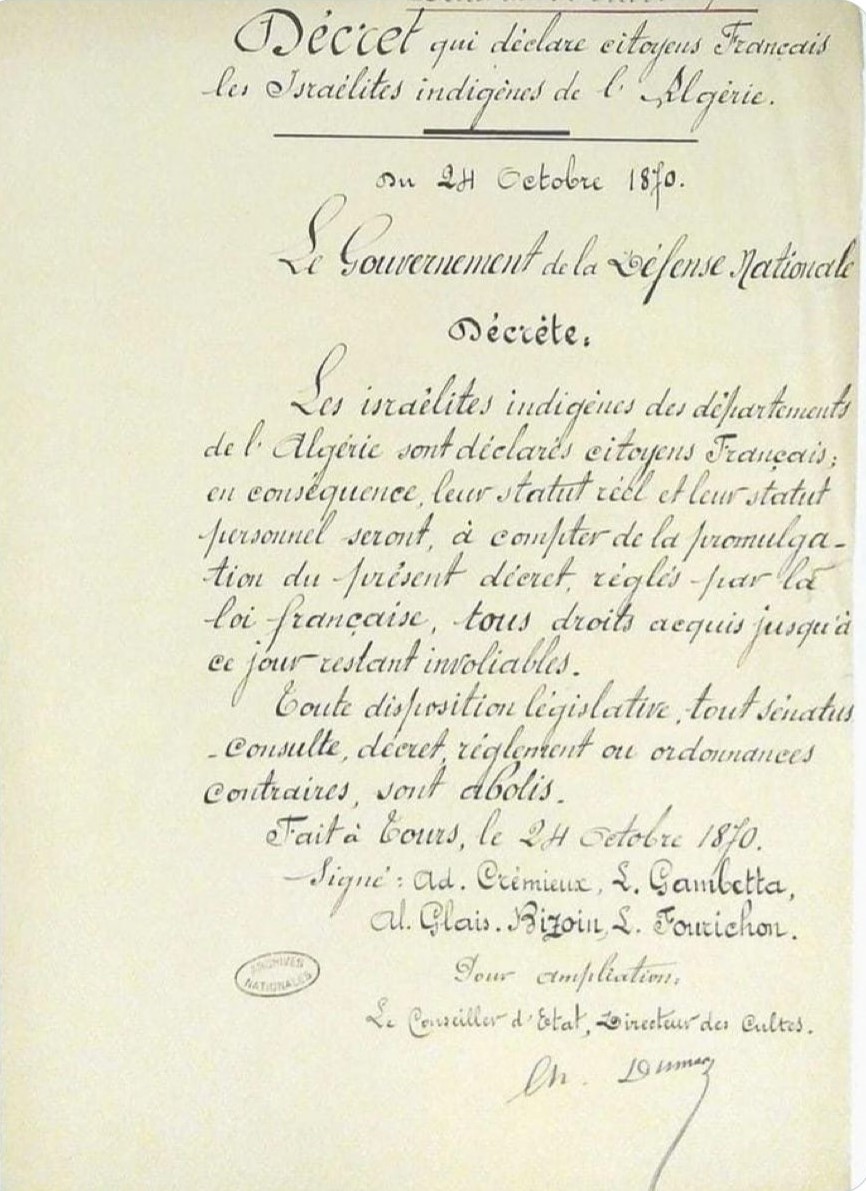 Décret qui déclare citoyens Français
les Israélites indigènes de l'Algérie.
Du 24 Octobre 1870.
Le Gouvernement de la Défense Nationale
Décrète:
Les israëlites indigènes des départements
de l'Algérie sont déclarés citoyens Français;
en conséquence, leur statut réel et leur statut
personnel seront, à compter de la promulga-
tion du présent décret, réglés par la
loi française, tous droits acquis jusqu'à
ce jour restant involiables.
Toute disposition législative, tout sénatus
-consulte, décret, réglement ou ordonnances
contraires, sont abolis.
Fait à Tours, le 24 Octobre 1870.
Signé: Ad. Crémieux, L. Gambetta,
Al. Glais-Bizoin, L. Fourichon.
ARCHIVES
NATIONALES
Pour ampliation,
Le Conseiller d'Etat, Directeur des Cultes.
Ch.